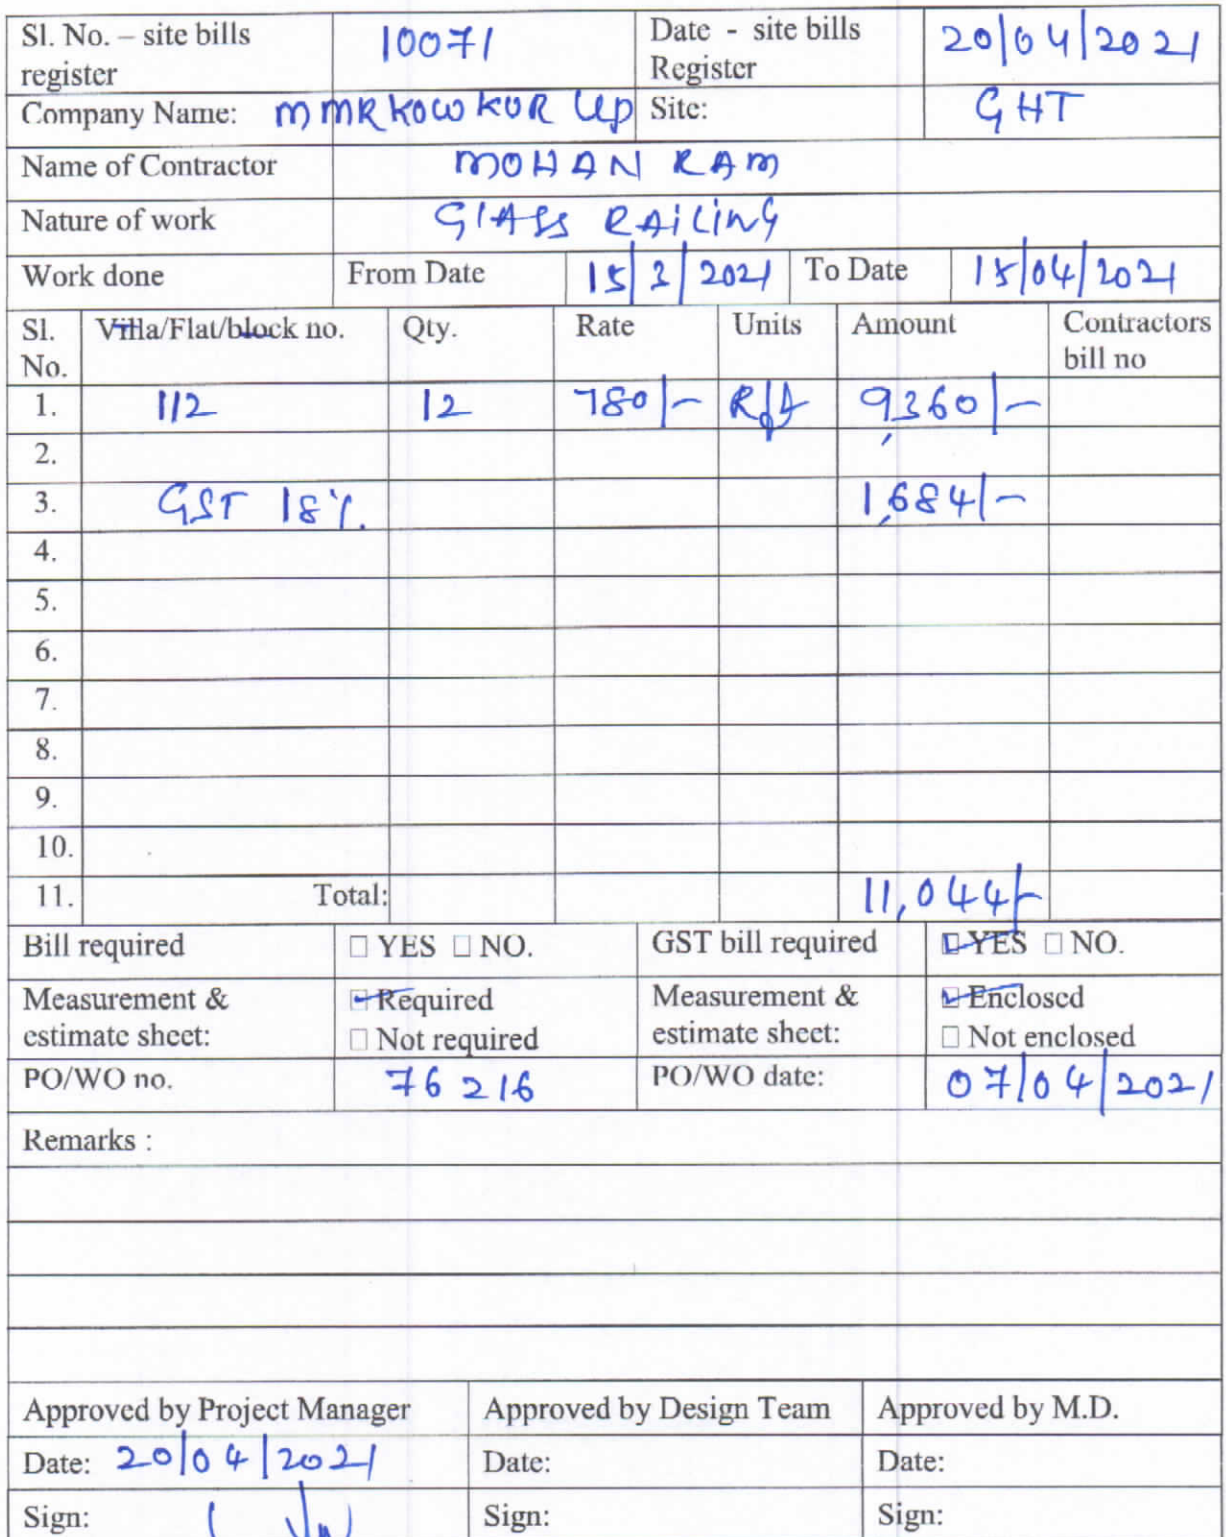 Sl. No. – site bills register 10071 Date - site bills Register 20/04/2021
Company Name: MMR KOWKUR LLP Site: GHT
Name of Contractor MOHAN RAM
Nature of work GLASS RAILING
Work done From Date 15/3/2021 To Date 15/04/2021
Sl. No. Villa/Flat/block no. Qty. Rate Units Amount Contractors bill no
1. 112 12 780/- Rft 9,360/-
2.
3. GST 18% 1,684/-
4.
5.
6.
7.
8.
9.
10.
11. Total: 11,044/-
Bill required ☐ YES ☐ NO. GST bill required ☑ YES ☐ NO.
Measurement & estimate sheet: ☑ Required ☐ Not required Measurement & estimate sheet: ☑ Enclosed ☐ Not enclosed
PO/WO no. 76216 PO/WO date: 07/04/2021
Remarks :
Approved by Project Manager Approved by Design Team Approved by M.D.
Date: 20/04/2021 Date: Date:
Sign: Sign: Sign: